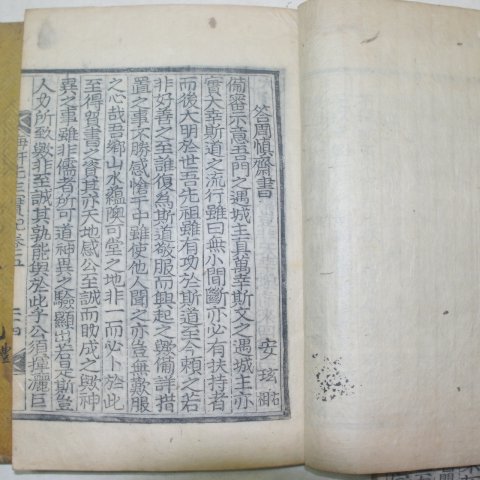 答周愼齋書
安玹 右相
備審示意吾門之遇城主眞萬幸斯文之遇城主亦
實大幸斯道之流行雖曰無小間斷亦必有扶持者
而後大明於世吾先祖雖有功於斯道至今賴之若
非好善之至誰復爲斯道敬服而興起之歟備詳措
置之事不勝感愴于中雖使他人聞之亦豈無歎服
之心哉吾鄕山水蘊隩可堂之地非一而必卜於此
至得買書之資其亦天地感公至誠而敗成之歟神
異之事雖非儒者所可道神異之驗顯出若是斯豈
人力所致歟非至誠其孰能與於此乎公須揮麗巨
實記卷之五